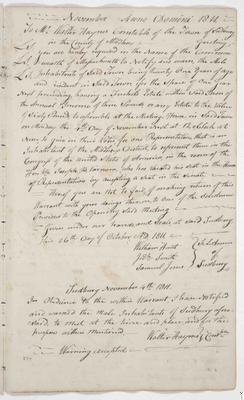 November Anno Domini 1811.
To Mr. Walter Haynes Constable of the Town of Sudbury
in the County of Middlesex Greeting
You are hereby required in the Name of the Commonwealth
of Massachusetts to Notify and warn the Male
Inhabitants of said Town being twenty One Years of age
resident in said Town for the Space of One year
next preceding, having a freehold Estate within said Town of
the Annual Income of three Pounds or any Estate to the Value
of Sixty Pounds to assemble at the Meeting House in said Town
on Monday the 4th Day of November next at
to give in their Votes for one Representative, that is an
Inhabitant of the Middlesex District, to represent them in the
Congress of the United States of America, in the room of the
Hon. Joseph B. Varnum, who has vacated his seat in the House
of Representatives by accepting a seat in the Senate.
Hereof you are not to fail of making return of this
Warrant with your doings thereon to one of the Selectmen
Previous to the Opening said Meeting
Given under our hands and Seals at said Sudbury
this 26th Day of October AD 1811.
William Hunt
Selectmen
Smith
of
Samuel Jones
Sudbury
Sudbury November 4th 1811.
In Obedience to the within Warrant I have Notified
and warned the Male Inhabitants of Sudbury aforesaid,
to meet at the time and place and for the
purpose within mentioned.
Walter Haynes
Warning accepted